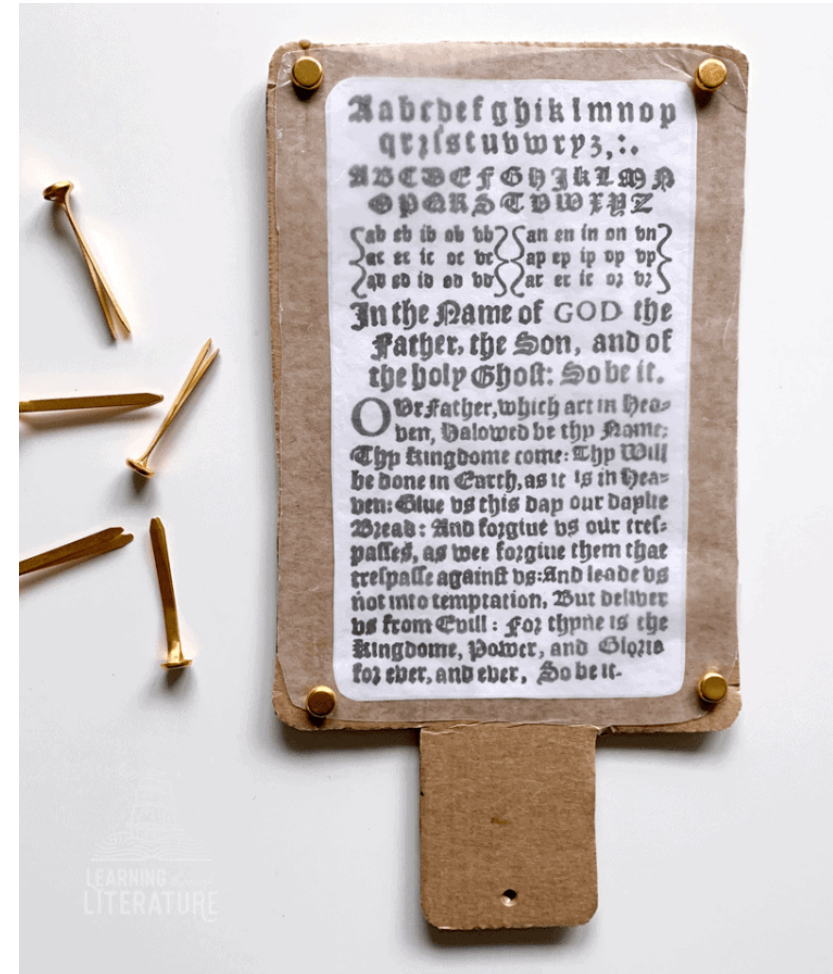 Aabcdefghiklmnop
qrꝛſstuvwxyz,:.
ABCDEFGHJKLMN
OPQRSTVWXYZ
ab eb ib ob vb an en in on vn
ac ec ic oc vc ap ep ip op vp
ad ed id od vd ar er ir oꝛ vꝛ
In the Name of GOD the
Father, the Son, and of
the holy Ghoſt: So be it.
OVr Father, which art in Hea-
ven, Halowed be thy Name:
Thy Kingdome come: Thy Will
be done in Earth, as it is in Hea-
ven: Giue vs this day our daylie
Bread: And foꝛgiue vs our treſ-
paſſes, as wee foꝛgiue them that
treſpaſſe againſt vs: And leade vs
not into temptation, But deliver
vs from Evill: Foꝛ thyne is the
Kingdome, Power, and Gloꝛie
foꝛ ever, and ever, So be it.
LEARNING through
LITERATURE